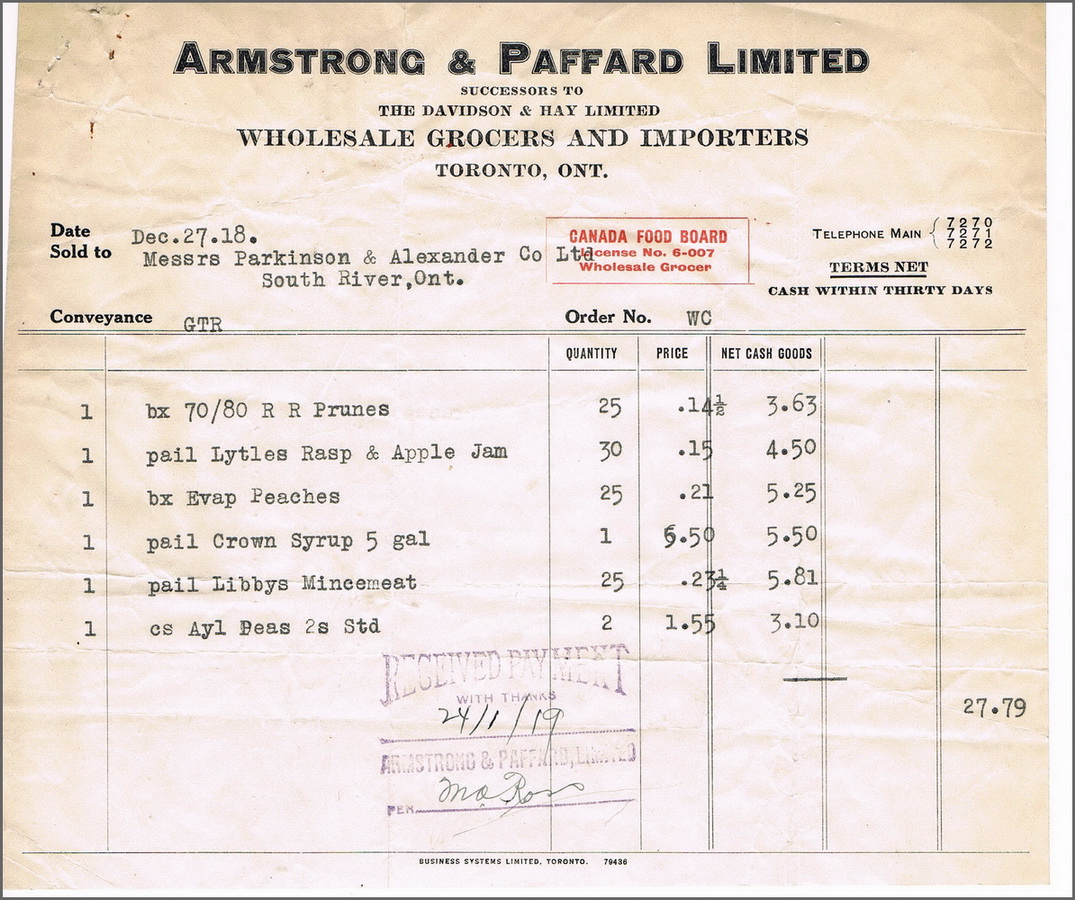 ARMSTRONG & PAFFARD LIMITED
SUCCESSORS TO
THE DAVIDSON & HAY LIMITED
WHOLESALE GROCERS AND IMPORTERS
TORONTO, ONT.
Date Dec.27.18.
Sold to Messrs Parkinson & Alexander Co Ltd
South River,Ont.
CANADA FOOD BOARD
License No. 6-007
Wholesale Grocer
TELEPHONE MAIN { 7270
7271
7272
TERMS NET
CASH WITHIN THIRTY DAYS
Conveyance GTR Order No. WC
QUANTITY PRICE NET CASH GOODS
1 bx 70/80 R R Prunes 25 .14½ 3.63
1 pail Lytles Rasp & Apple Jam 30 .15 4.50
1 bx Evap Peaches 25 .21 5.25
1 pail Crown Syrup 5 gal 1 5.50 5.50
1 pail Libbys Mincemeat 25 .23¼ 5.81
1 cs Ayl Peas 2s Std 2 1.55 3.10
27.79
RECEIVED PAYMENT
WITH THANKS
24/1/19
ARMSTRONG & PAFFARD, LIMITED
PER Ross
BUSINESS SYSTEMS LIMITED, TORONTO. 79436